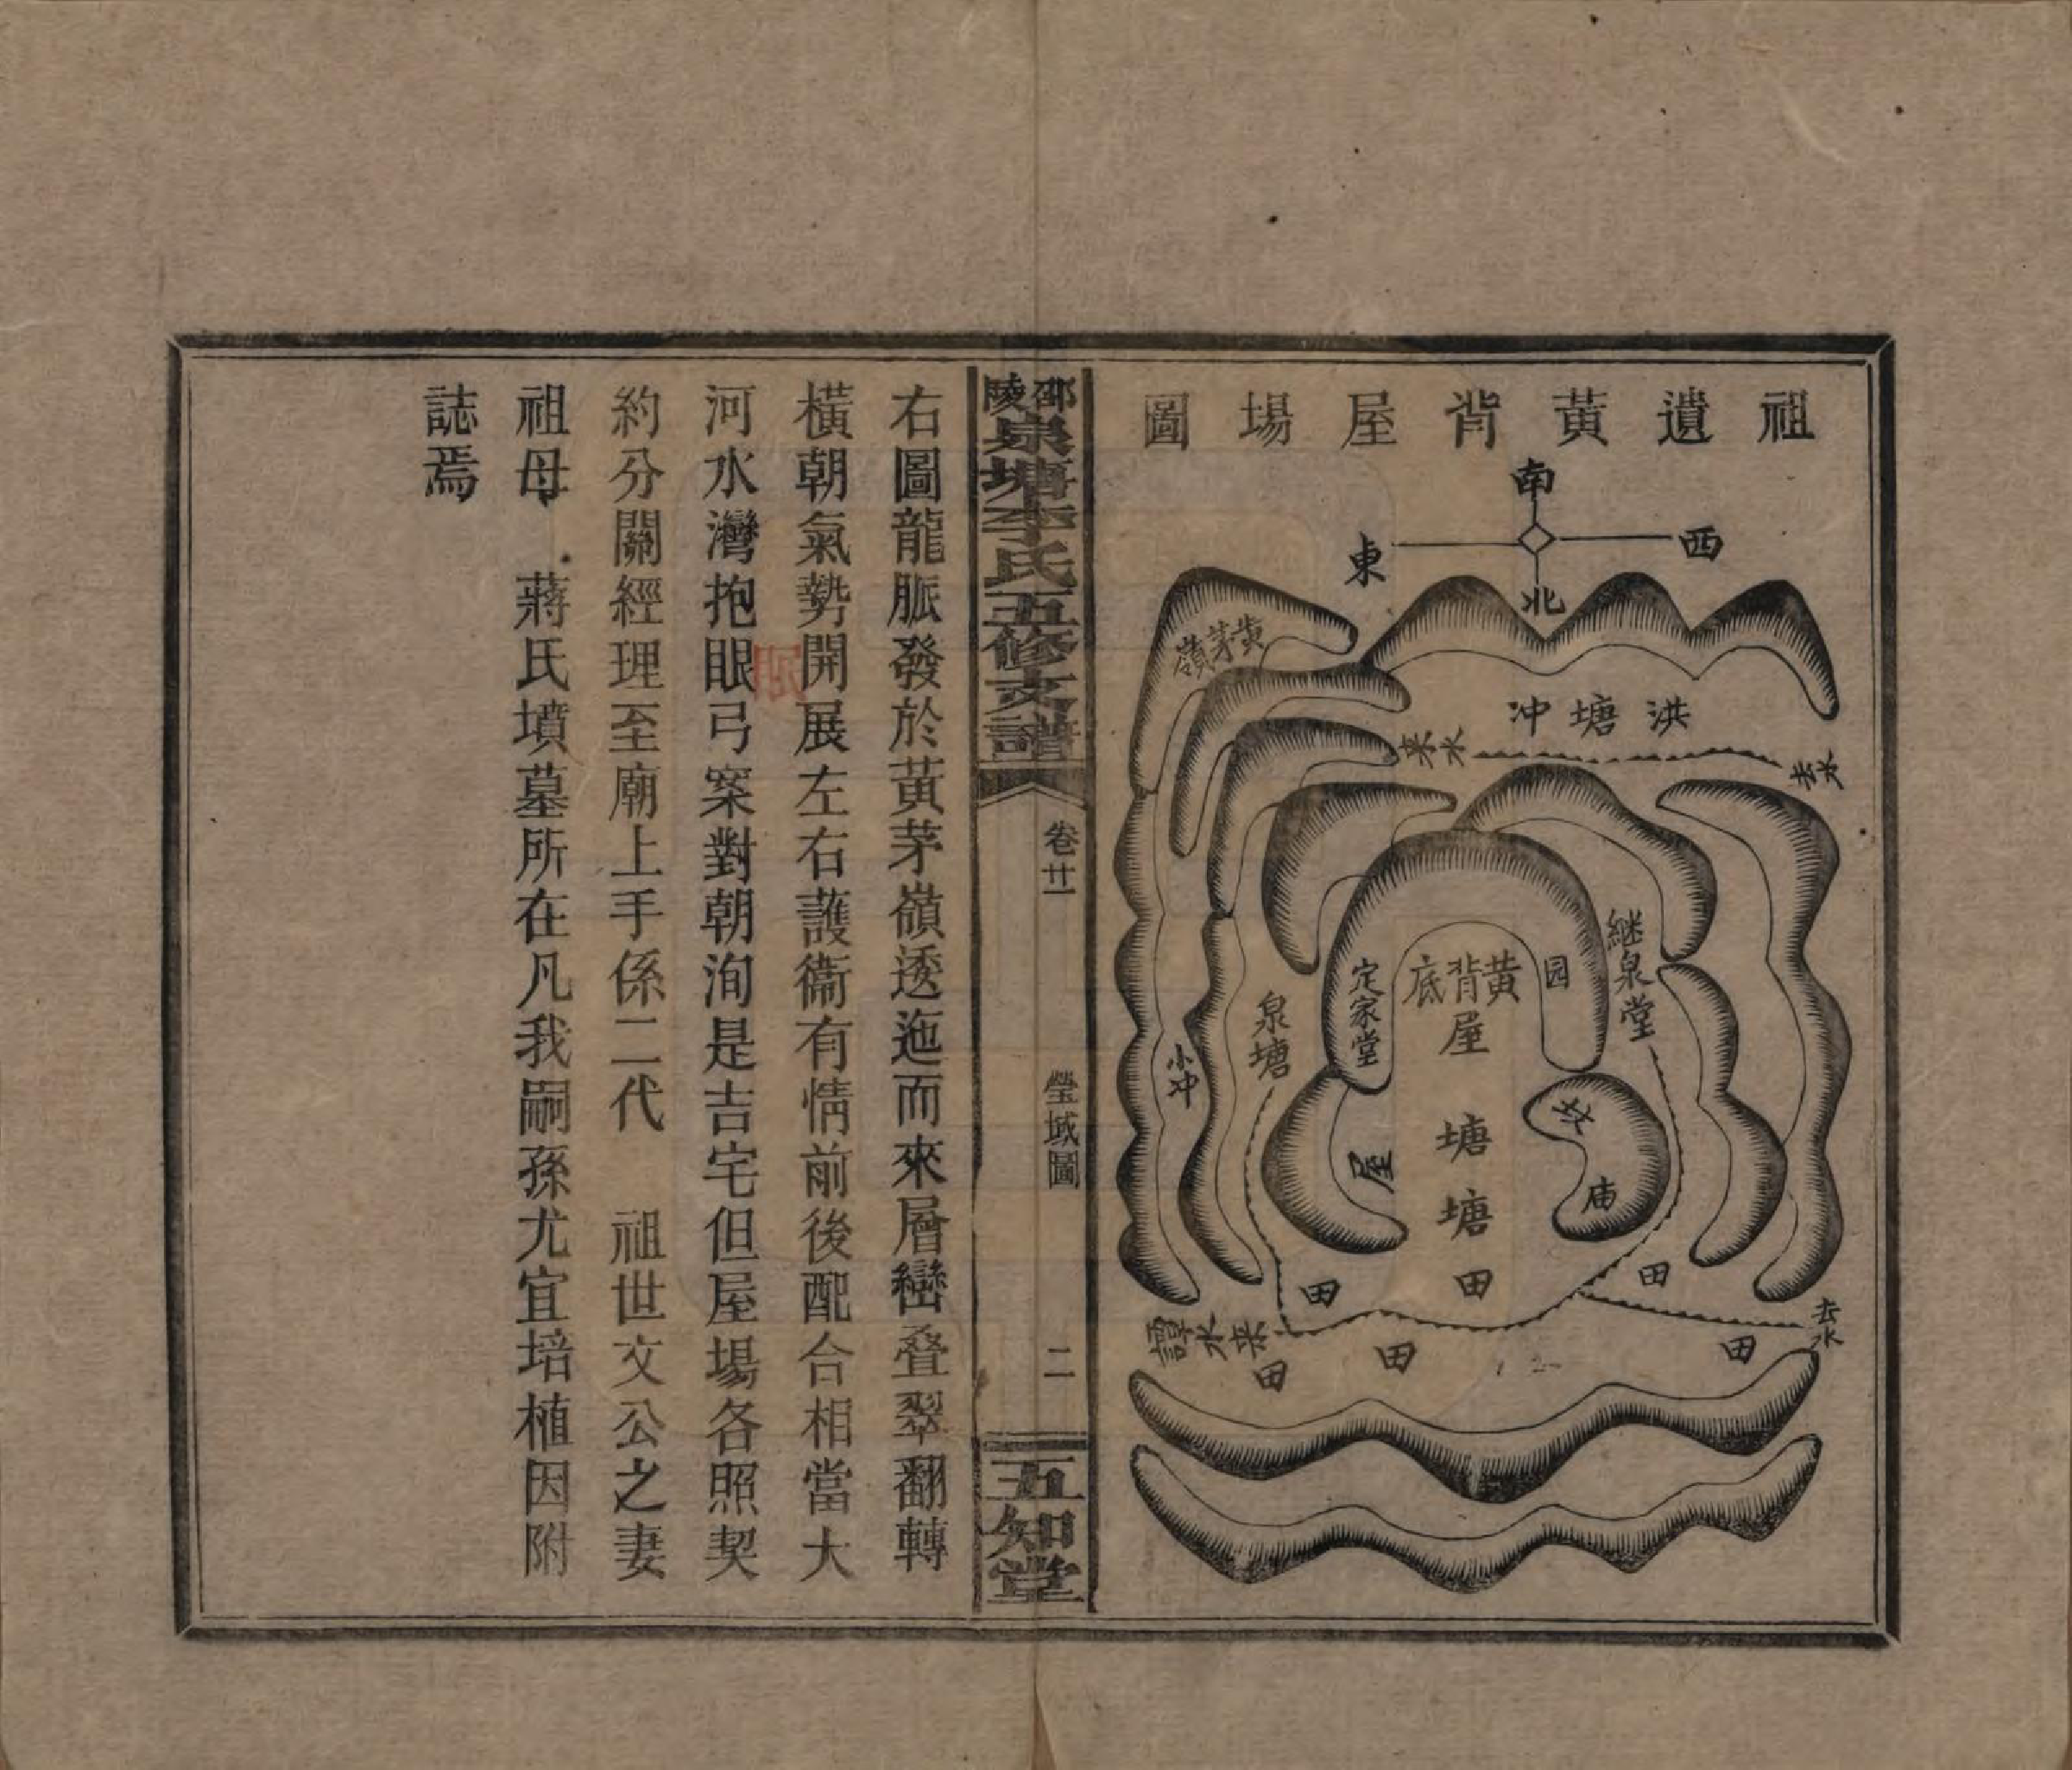 祖遺黃背屋場圖
南
西
東
北
黄茅嶺
洪塘冲
来水
去水
继泉堂
园
黄背底
屋
定家堂
泉塘
小冲
坟
庙
屋
塘
塘
田
田
田
去水
来水
田
田
田
邵陵泉塘李氏五修支譜
卷廿一
塋域圖
二
五知堂
右圖龍脈發於黃茅嶺逶迤而來層巒叠翠翻轉
橫朝氣勢開展左右護衞有情前後配合相當大
河水灣抱眼弓案對朝洵是吉宅但屋場各照契
約分關經理至廟上手係二代　祖世文公之妻
祖母　蔣氏墳墓所在凡我嗣孫尤宜培植因附
誌焉